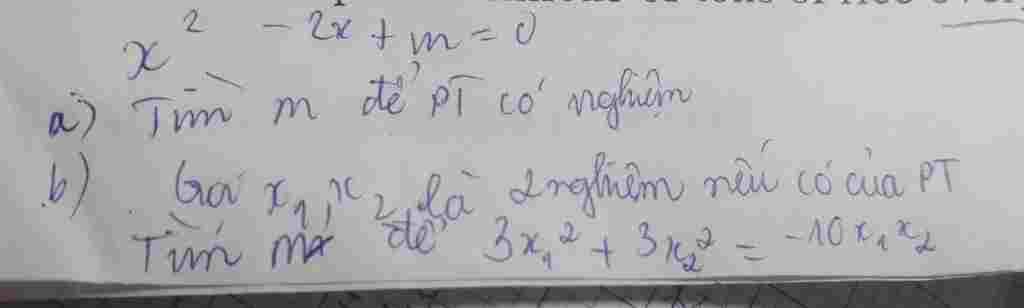 x² - 2x + m = 0
a) Tìm m để PT có nghiệm
b) Gọi x₁, x₂ là 2 nghiệm nếu có của PT
Tìm m để 3x₁² + 3x₂² = -10x₁x₂